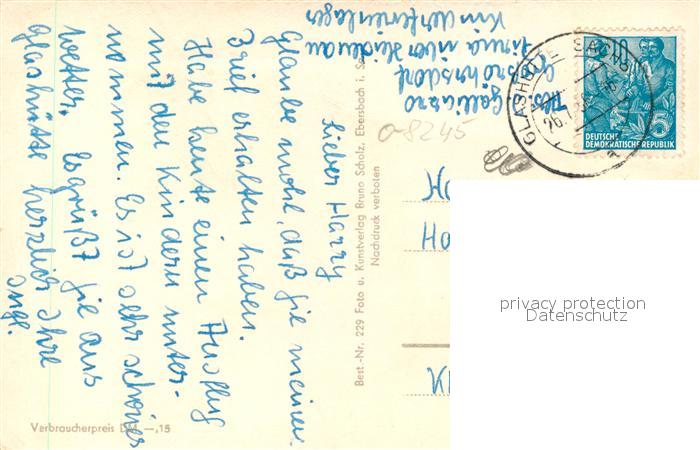 Lieber Harry
Glaube wohl, daß Sie meinen
Brief erhalten haben.
Habe heute einen Ausflug
mit den Kindern unter-
nommen. Es ist sehr schönes
Wetter. Es grüßt Sie aus
Glashütte herzlich Ihre
Inge.
Verbraucherpreis DM —,15
Best.-Nr. 229 Foto u. Kunstverlag Bruno Scholz, Ebersbach i. Sa.
Nachdruck verboten
Abs.
Kinderferienlager
0-8245
GLASHÜTTE SACHS
26.
10
5
DEUTSCHE
DEMOKRATISCHE REPUBLIK
H
Ha
K
privacy protection
Datenschutz